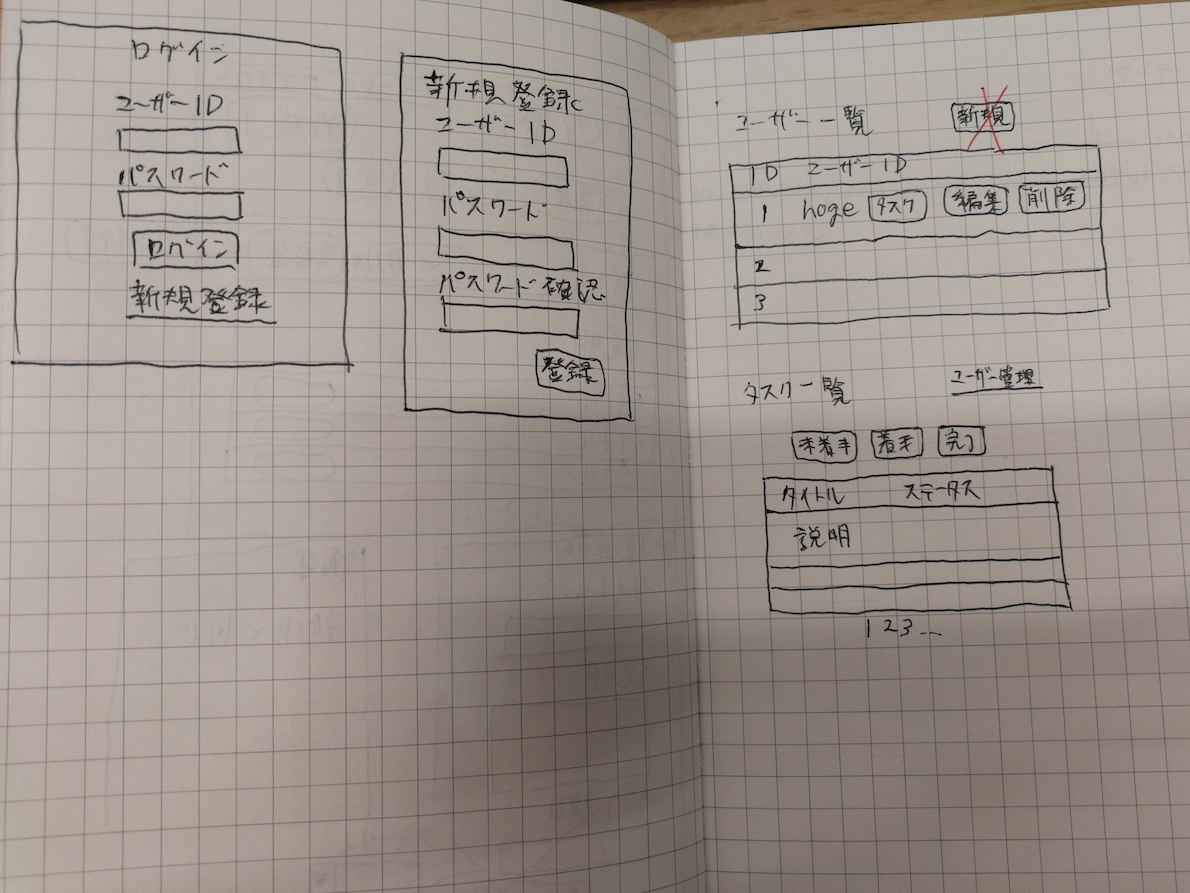 ログイン
ユーザーID
パスワード
ログイン
新規登録
新規登録
ユーザーID
パスワード
パスワード確認
登録
ユーザー一覧 新規
ID ユーザーID
1 hoge タスク 編集 削除
2
3
タスク一覧 ユーザー管理
未着手 着手 完了
タイトル ステータス
説明
1 2 3 ...